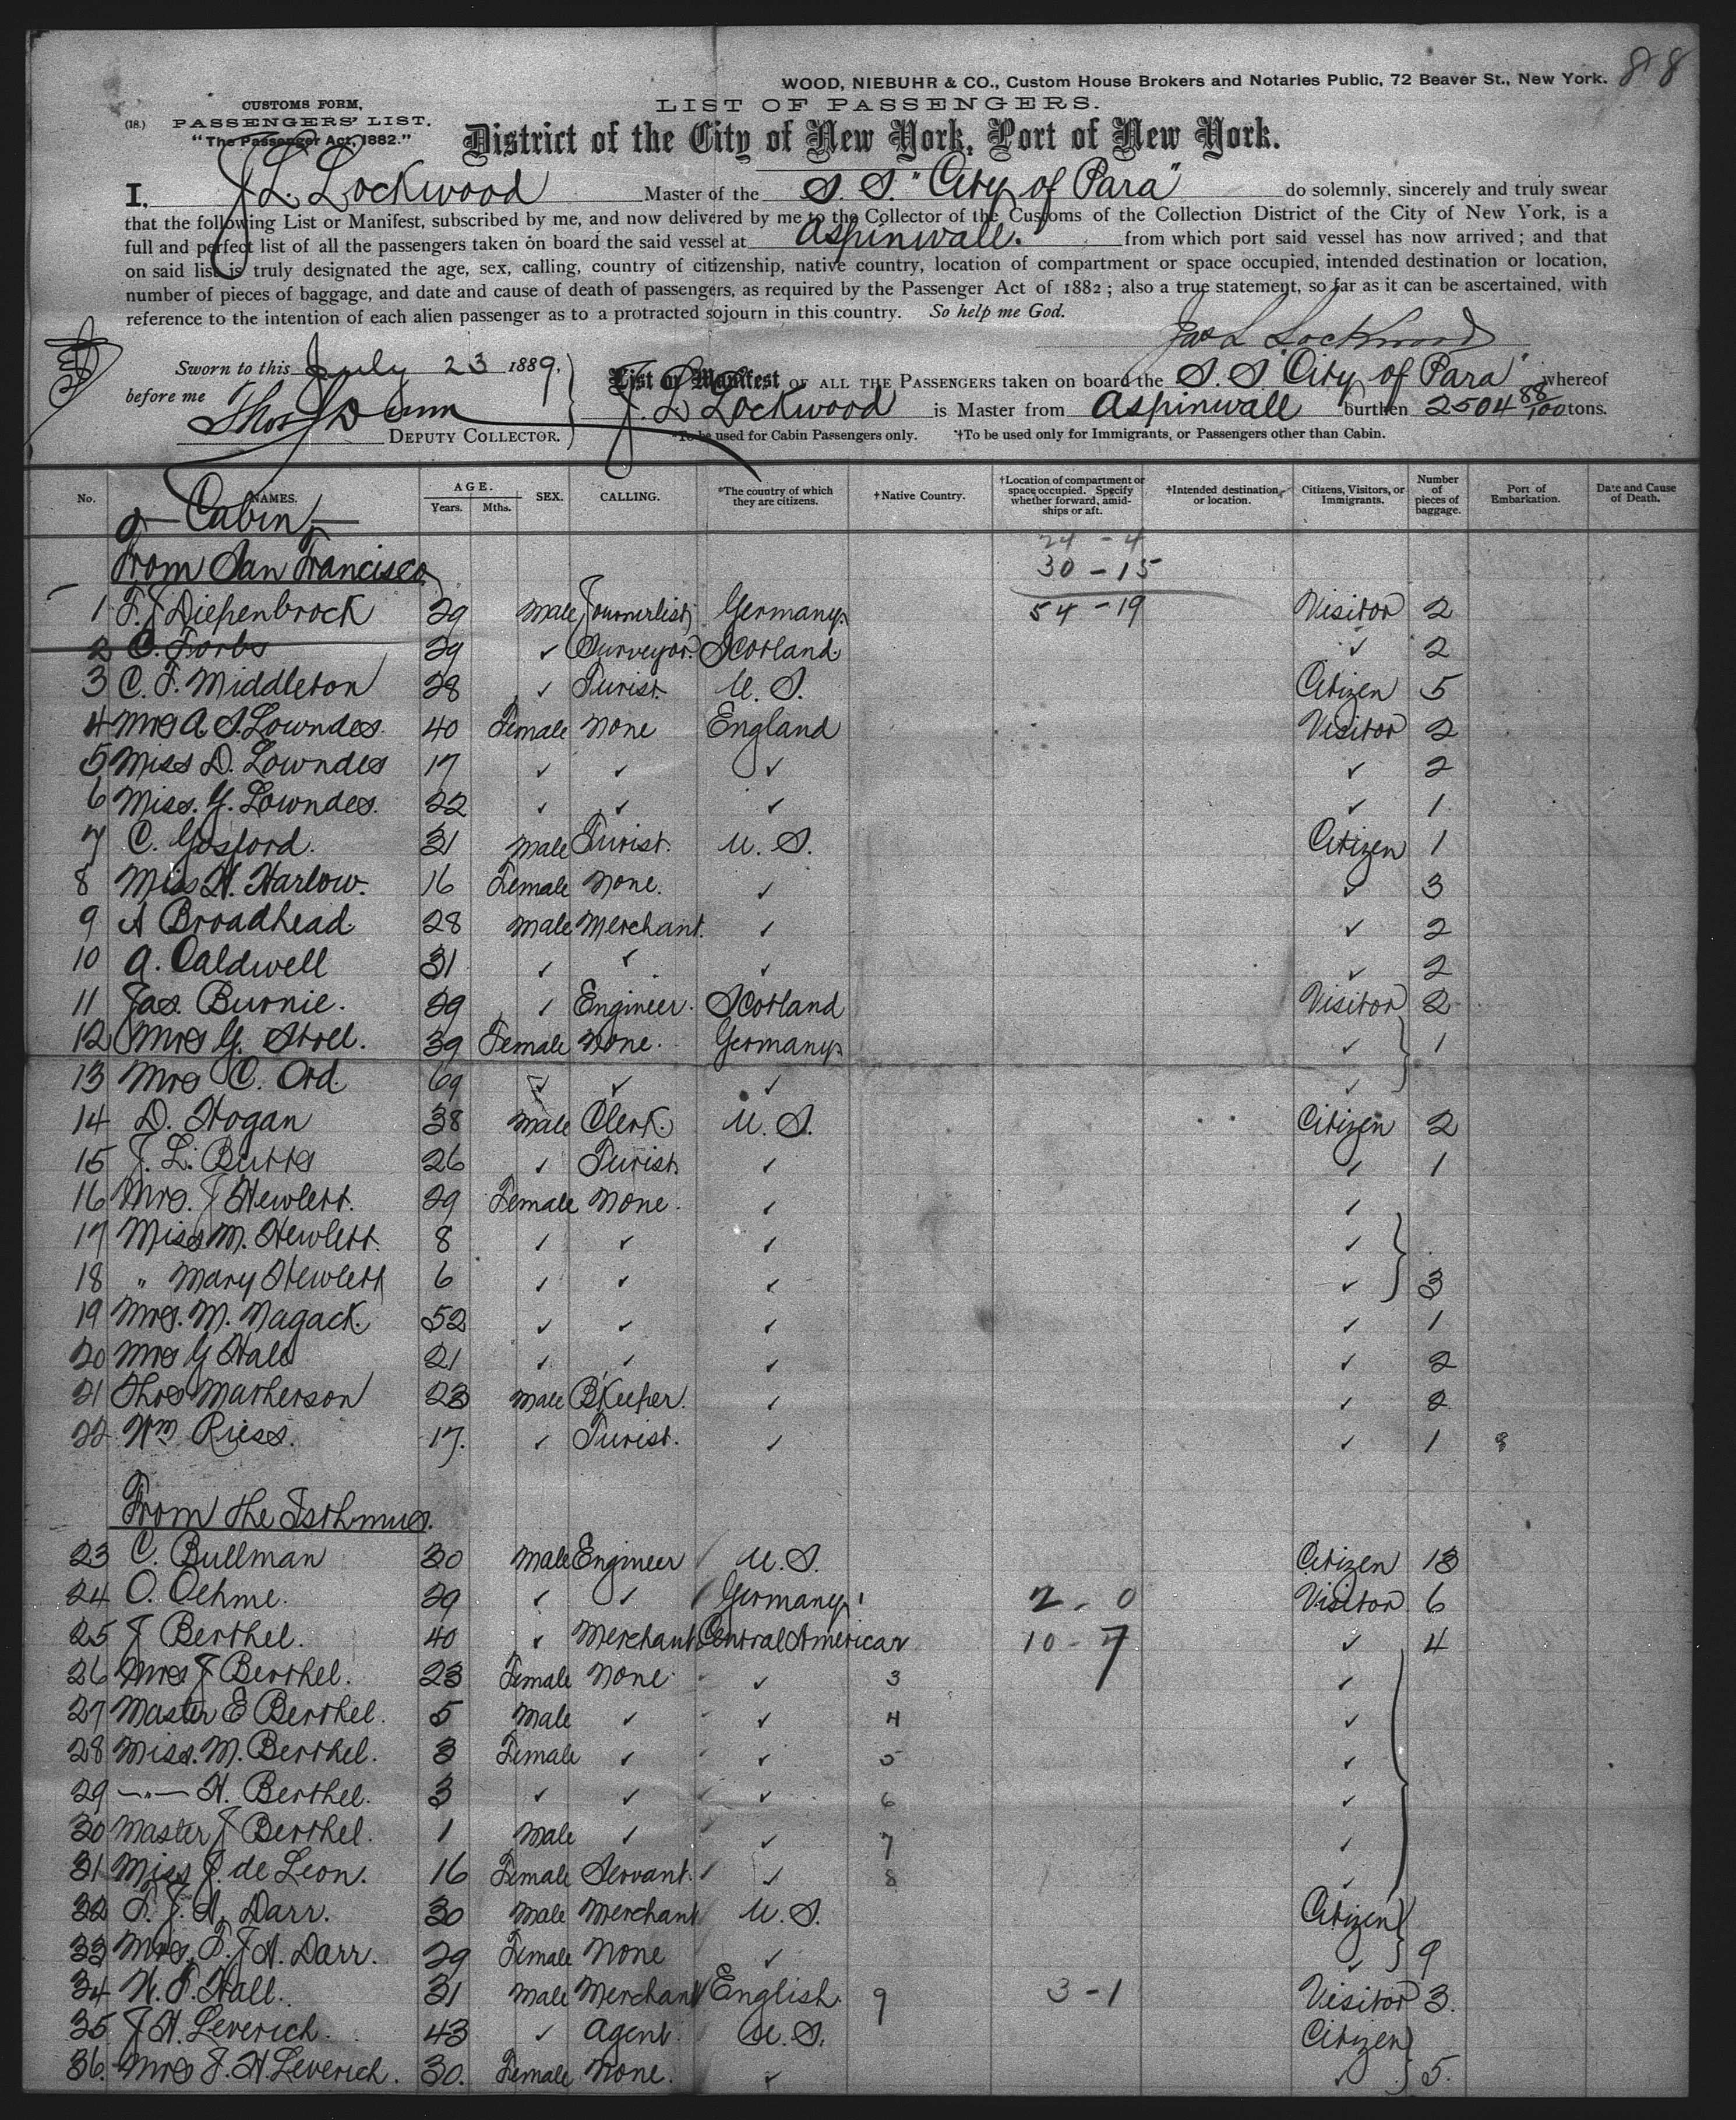 88
WOOD, NIEBUHR & CO., Custom House Brokers and Notaries Public, 72 Beaver St., New York.
(18.)
CUSTOMS FORM,
PASSENGERS' LIST.
"The Passenger Act, 1882."
LIST OF PASSENGERS.
District of the City of New York, Port of New York.
I, J. L. Lockwood Master of the S. S. "City of Para" do solemnly, sincerely and truly swear
that the following List or Manifest, subscribed by me, and now delivered by me to the Collector of the Customs of the Collection District of the City of New York, is a
full and perfect list of all the passengers taken on board the said vessel at Aspinwall. from which port said vessel has now arrived; and that
on said list is truly designated the age, sex, calling, country of citizenship, native country, location of compartment or space occupied, intended destination or location,
number of pieces of baggage, and date and cause of death of passengers, as required by the Passenger Act of 1882; also a true statement, so far as it can be ascertained, with
reference to the intention of each alien passenger as to a protracted sojourn in this country. So help me God.
Jas L Lockwood
Sworn to this July 23 1889,
before me Thos Dunn
DEPUTY COLLECTOR.
List or Manifest OF ALL THE PASSENGERS taken on board the S. S. "City of Para" whereof
J. L. Lockwood is Master from Aspinwall burthen 2504 88/100 tons.
*To be used for Cabin Passengers only. †To be used only for Immigrants, or Passengers other than Cabin.
No. NAMES. AGE. Years. Mths. SEX. CALLING. *The country of which they are citizens. †Native Country. †Location of compartment or space occupied. Specify whether forward, amidships or aft. †Intended destination or location. Citizens, Visitors, or Immigrants. Number of pieces of baggage. Port of Embarkation. Date and Cause of Death.
Cabin
24 - 4
From San Francisco 30 - 15
1 F. J Diepenbrock 29 Male Journalist Germany 54 - 19 Visitor 2
2 C. Forbs 29 ✓ Surveyor Scotland ✓ 2
3 C. F. Middleton 28 ✓ Turist U. S. Citizen 5
4 Mrs A. S. Lowndes 40 Female None England Visitor 2
5 Miss D. Lowndes 17 ✓ ✓ ✓ ✓ 2
6 Miss. G. Lowndes. 22 ✓ ✓ ✓ ✓ 1
7 C. Gosford. 31 Male Turist. U. S. Citizen 1
8 Miss H. Harlow. 16 Female None. ✓ ✓ 3
9 A Broadhead 28 Male Merchant. ✓ ✓ 2
10 A. Caldwell 31 ✓ ✓ ✓ ✓ 2
11 Jas. Burnie. 29 ✓ Engineer. Scotland Visitor 2
12 Mrs G. Stoll. 39 Female None. Germany ✓ 1
13 Mrs C. Ord. 69 ✓ ✓ ✓ ✓
14 D. Hogan 38 Male Clerk. U. S. Citizen 2
15 J. L. Butts 26 ✓ Turist. ✓ ✓ 1
16 Mrs. J Hewlett. 29 Female None. ✓ ✓
17 Miss M. Hewlett. 8 ✓ ✓ ✓ ✓
18 " Mary Hewlett 6 ✓ ✓ ✓ ✓ 3
19 Mrs. M. Magack. 52 ✓ ✓ ✓ ✓ 1
20 Mrs G Hale 21 ✓ ✓ ✓ ✓ 2
21 Thos Matherson 23 Male B'Keeper. ✓ ✓ 2
22 Wm Riess. 17. ✓ Turist. ✓ ✓ 1
From the Isthmus.
23 C. Bullman 30 Male Engineer U. S. Citizen 13
24 O. Oehme. 29 ✓ ✓ Germany 2 - 0 Visitor 6
25 J Berthel. 40 ✓ Merchant Central American 10 - 7 ✓ 4
26 Mrs J Berthel. 23 Female None ✓ 3 ✓
27 Master E Berthel. 5 Male ✓ ✓ 4 ✓
28 Miss. M. Berthel. 3 Female ✓ ✓ 5 ✓
29 —"— H. Berthel. 3 ✓ ✓ ✓ 6 ✓
30 Master J Berthel. 1 Male ✓ ✓ 7 ✓
31 Miss J. de Leon. 16 Female Servant. ✓ 8 ✓
32 F. J. A. Darr. 30 Male Merchant U. S. Citizen
33 Mrs. F. J A. Darr. 29 Female None ✓ ✓ 9
34 H. P. Hall. 31 Male Merchant English. 9 3 - 1 Visitor 3.
35 J H. Leverich. 43 ✓ Agent. U. S. Citizen
36. Mrs J. H. Leverich. 30. Female None. ✓ ✓ 5.